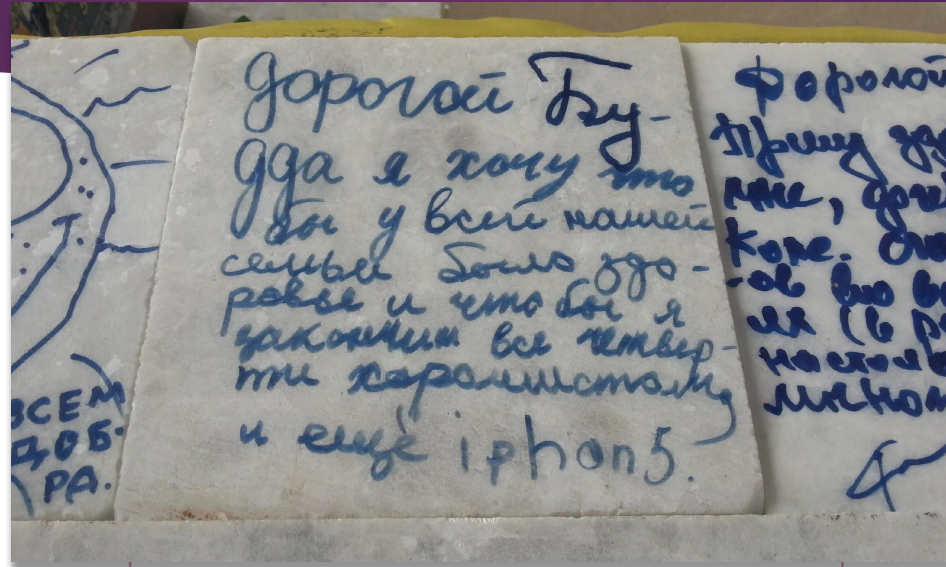 ВСЕМ
ДОБ-
РА.
Дорогой Бу-
дда я хочу что
бы у всей нашей
семьи было здо-
ровье и что бы я
закончил все четвер-
ти хорошистом,
и ещё iphon5.
Дорогой
Прошу
мне,